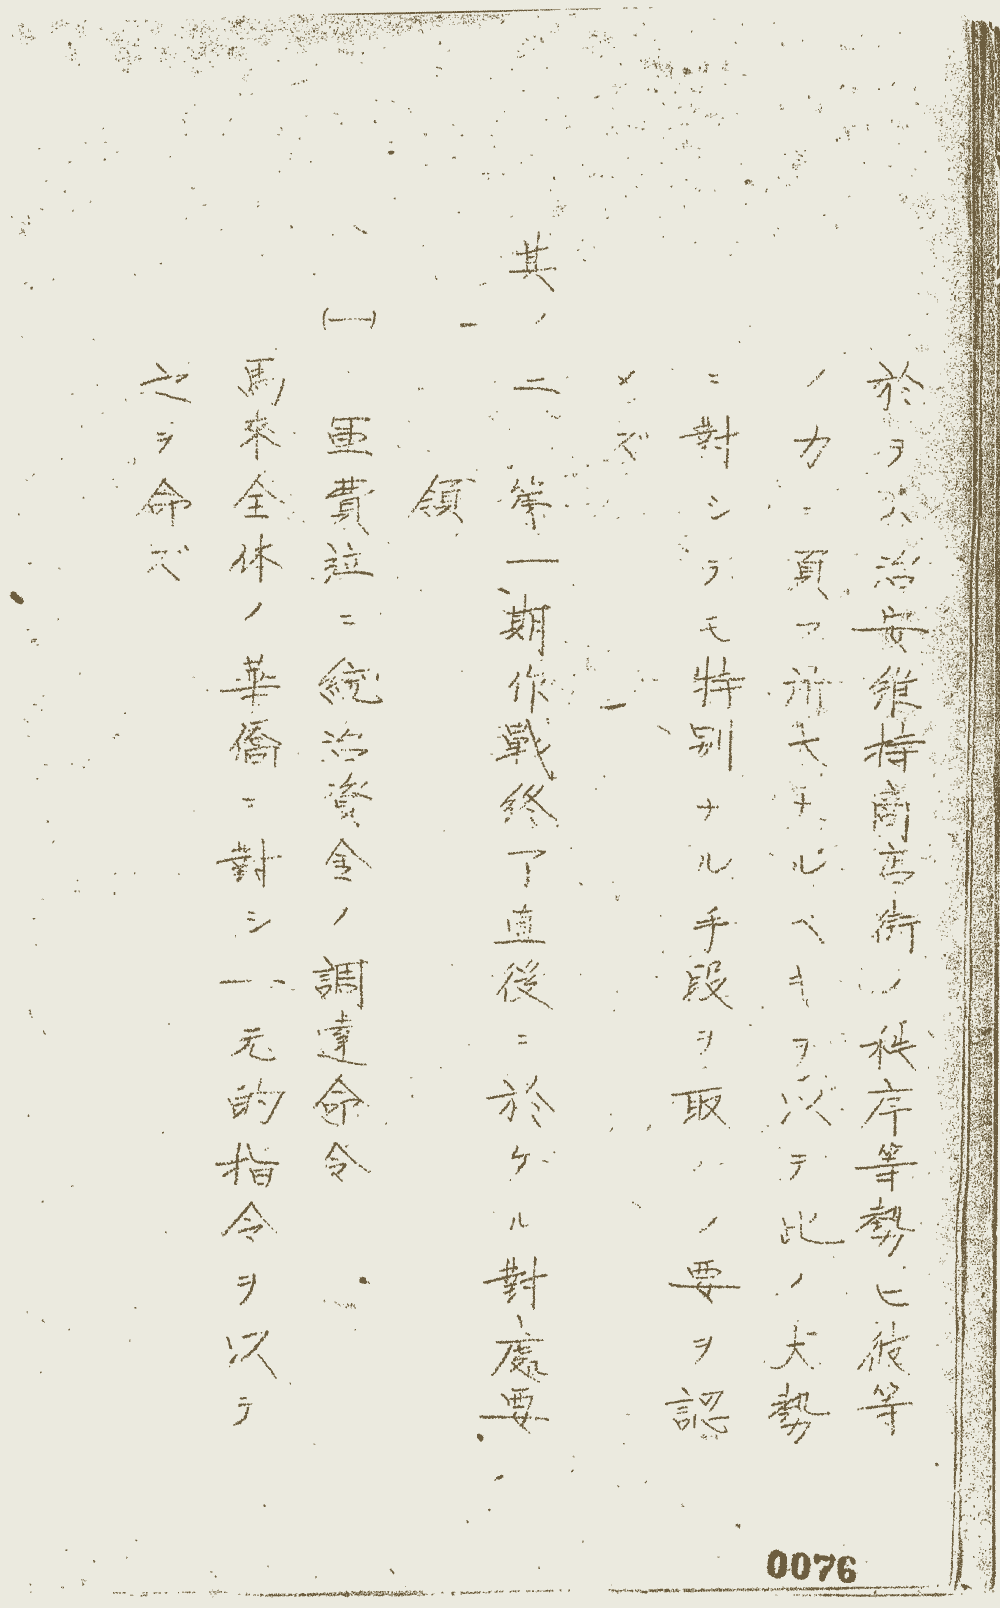 於ヲハ治安維持商店街ノ秩序等勢ヒ彼等
ノカニ頁フ所大ナルベキヲ以テ此ノ大勢
ニ對シテモ特別ナル手段ヲ取ルノ要ヲ認
メズ
其ノ二 第一期作戰終了直後ニ於ケル對處要
領
(一) 軍費竝ニ統治資金ノ調達命令
馬來全体ノ華僑ニ對シ一元的指令ヲ以テ
之ヲ命ズ
0076